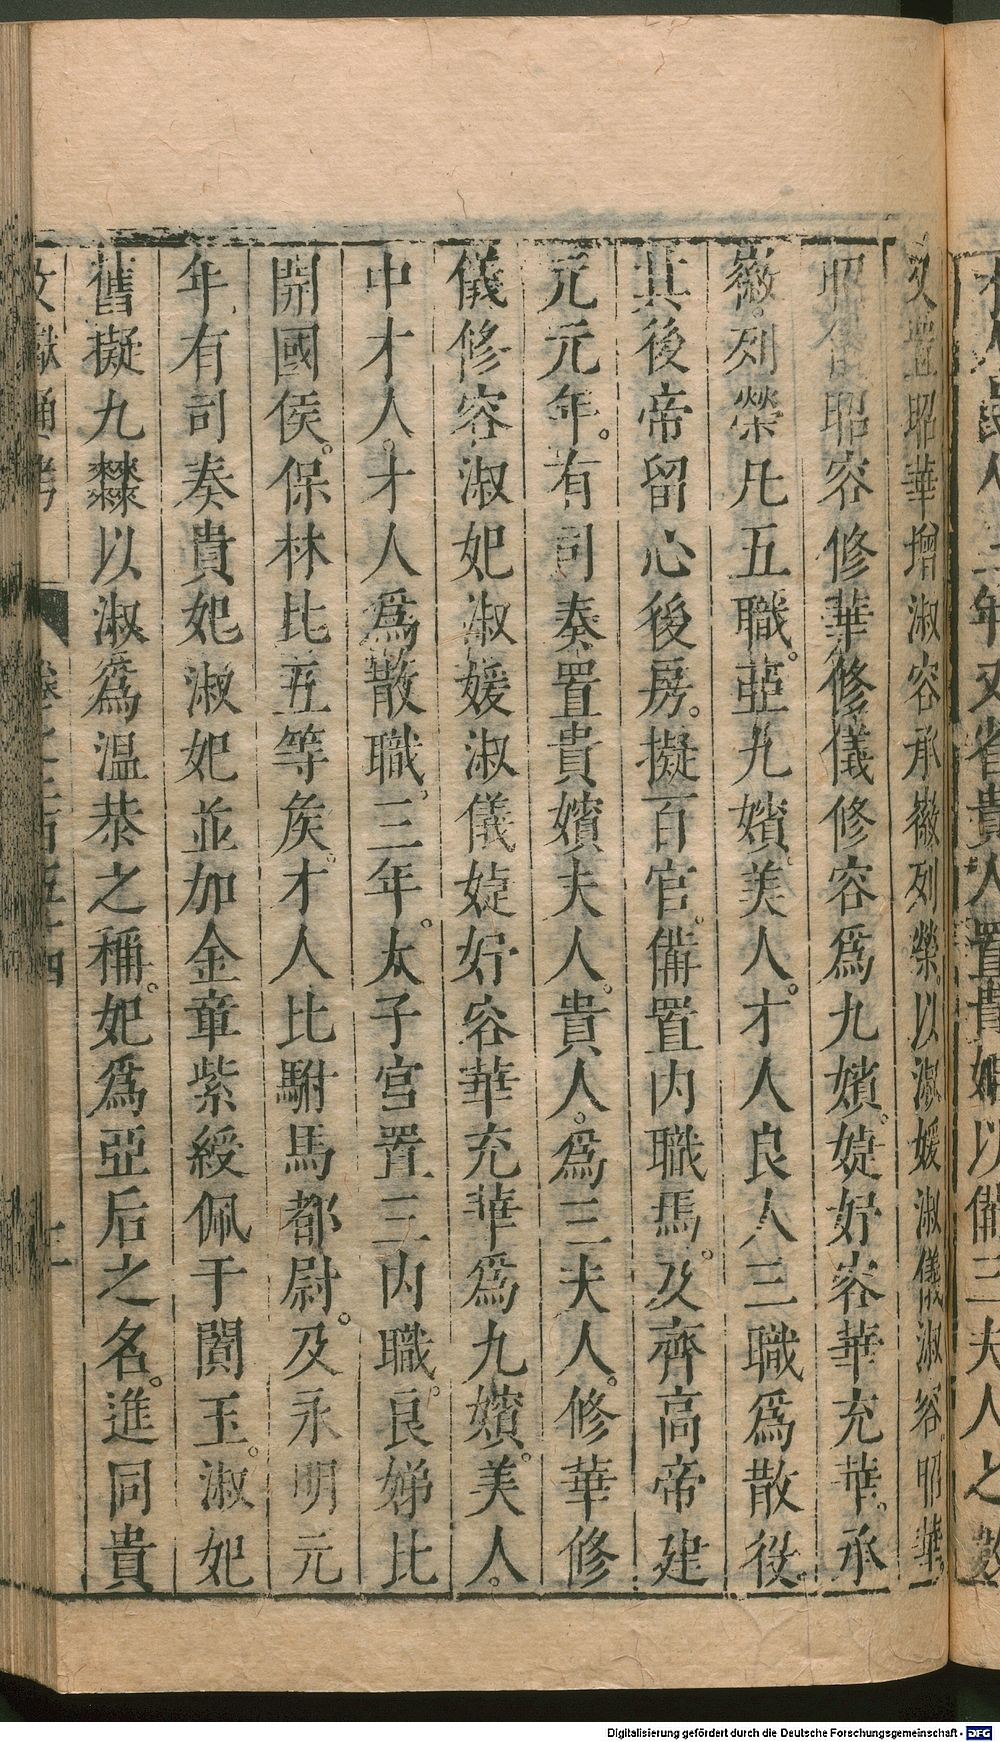 又置昭華增淑容承徽列榮以淑媛淑儀淑容昭華
昭儀昭容修華修儀修容爲九嬪。婕妤容華充華。承
徽。列榮凡五職。亞九嬪。美人。才人良人三職爲散役。
其後帝留心後房。擬百官。備置內職焉。及齊高帝建
元元年。有司奏置貴嬪夫人。貴人。爲三夫人。修華修
儀修容淑妃淑媛淑儀婕妤容華充華爲九嬪。美人。
中才人。才人爲散職。三年。太子宮置三內職。良娣比
開國侯。保林比五等矦。才人比駙馬都尉。及永明元
年有司奏貴妃淑妃並加金章紫綬佩于闐玉。淑妃
舊擬九棘以淑爲溫恭之稱。妃爲亞后之名。進同貴
文獻通考
Digitalisierung gefördert durch die Deutsche Forschungsgemeinschaft - DFG